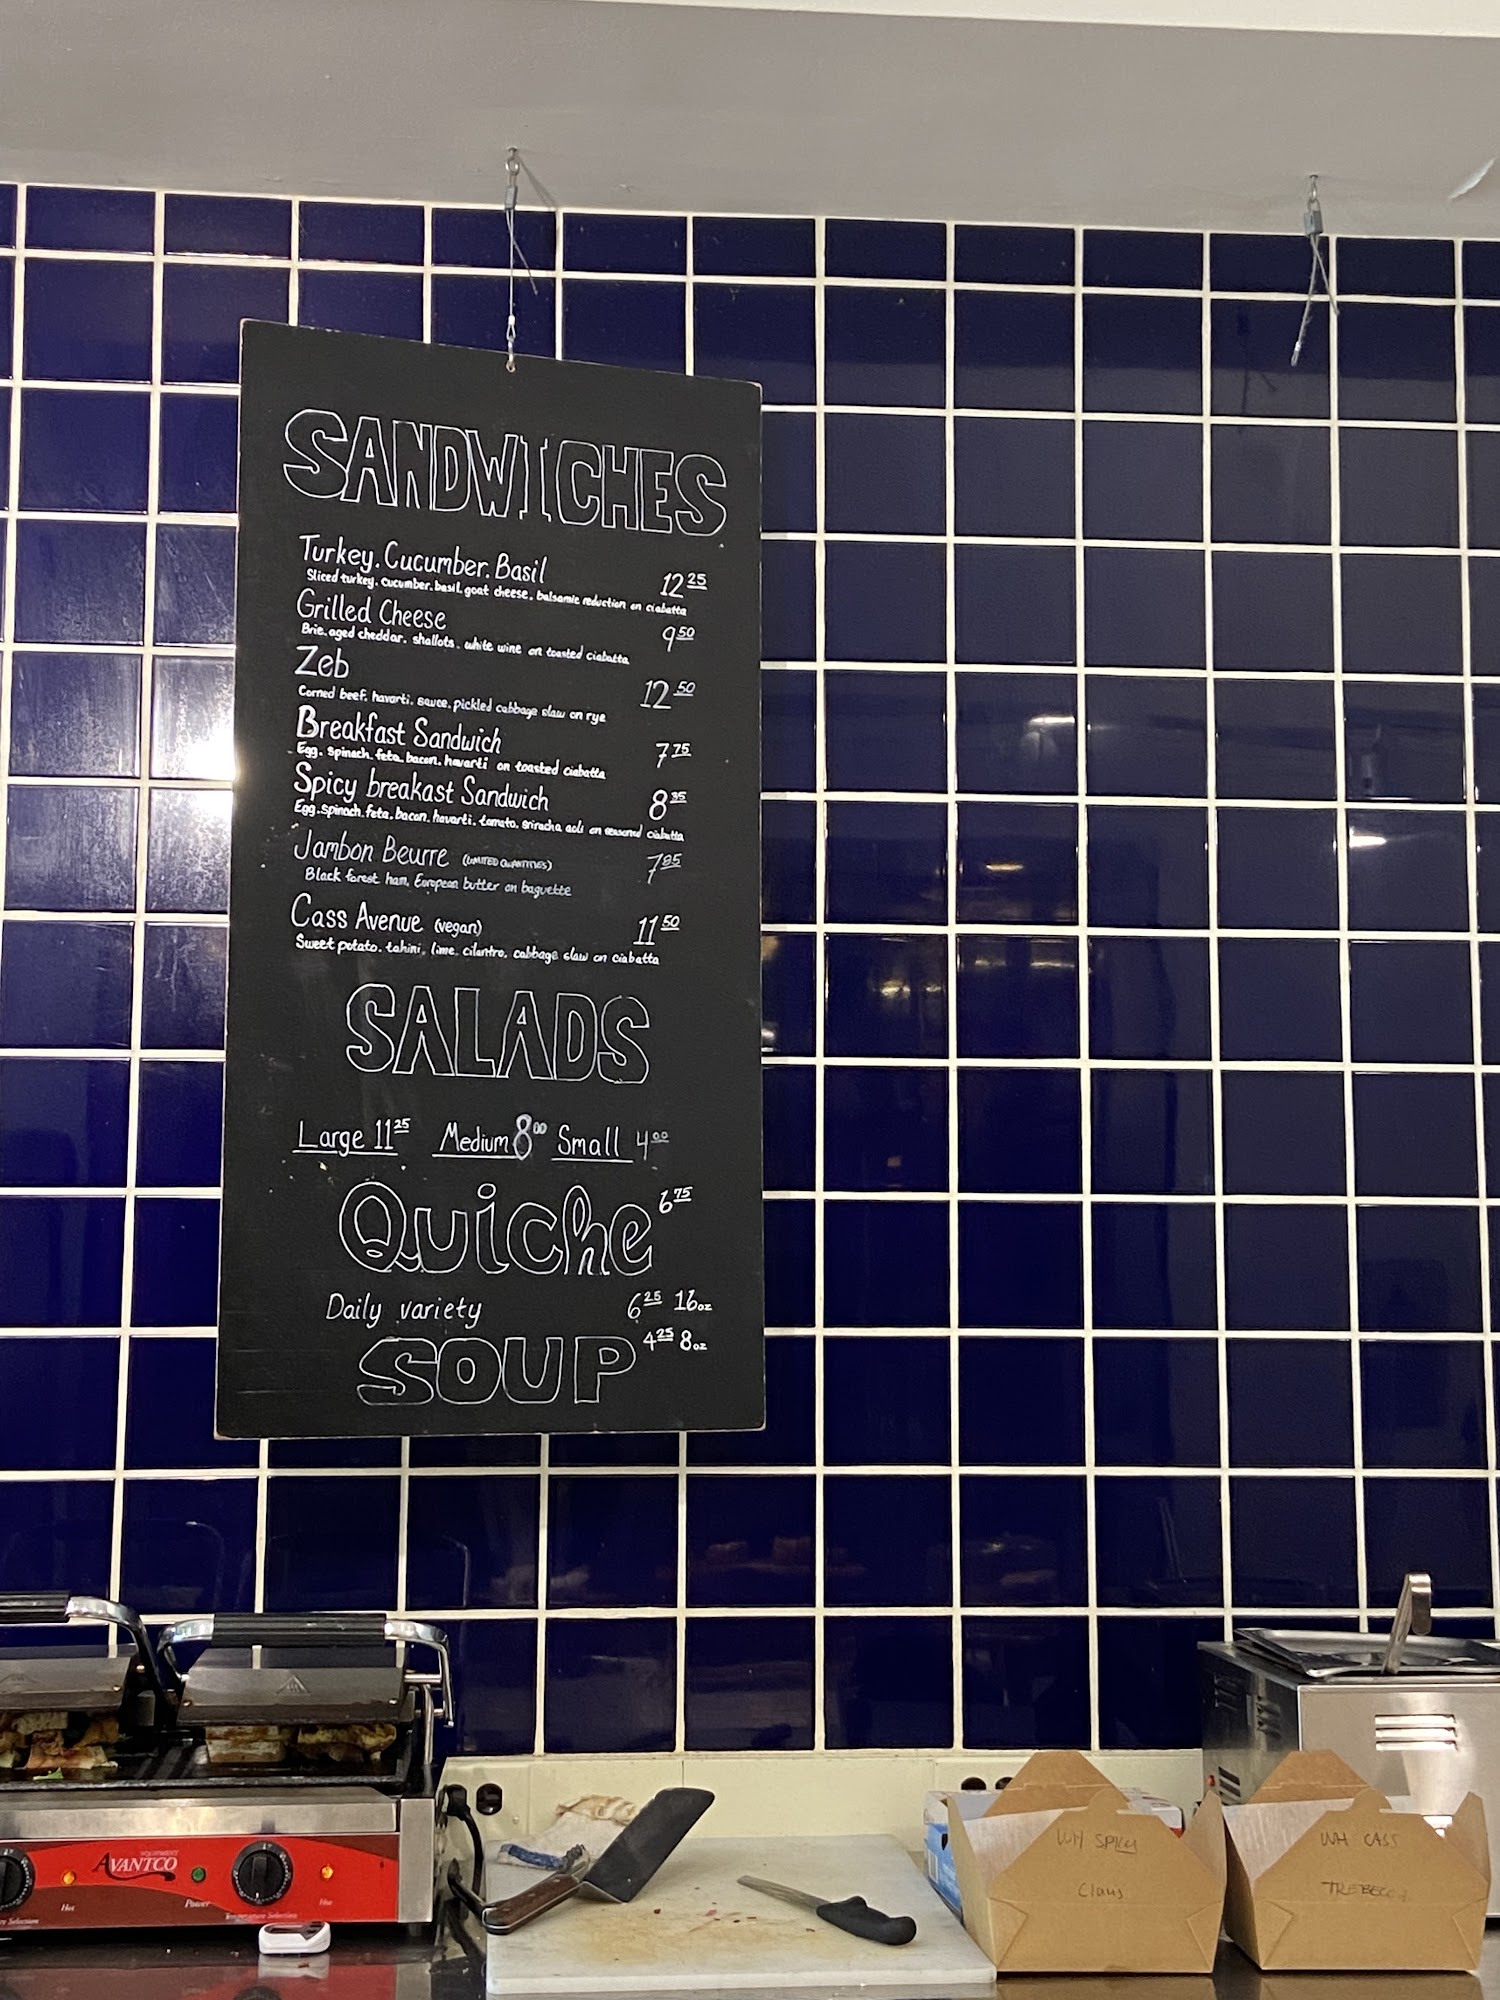 SANDWICHES
Turkey. Cucumber. Basil 12 25
Sliced turkey. cucumber. basil. goat cheese. balsamic reduction on ciabatta
Grilled Cheese 9 50
Brie. aged cheddar. shallots. white wine on toasted ciabatta
Zeb 12 50
Corned beef. havarti. sauce. pickled cabbage slaw on rye
Breakfast Sandwich 7 75
Egg. spinach. feta. bacon. havarti on toasted ciabatta
Spicy breakast Sandwich 8 35
Egg. spinach. feta. bacon. havarti. tomato. sriracha aoli on seasoned ciabatta
Jambon Beurre (LIMITED QUANTITIES) 7 85
Black forest ham, European butter on baguette
Cass Avenue (vegan) 11 50
Sweet potato. tahini. lime. cilantro. cabbage slaw on ciabatta
SALADS
Large 11 25 Medium 8 00 Small 4 00
Quiche 6 75
Daily variety 6 25 16oz
SOUP 4 25 8oz
EQUIPMENT
AVANTCO
Hot Power Hot
Temperature Selection
WH SPICY
Claus
WH CASS